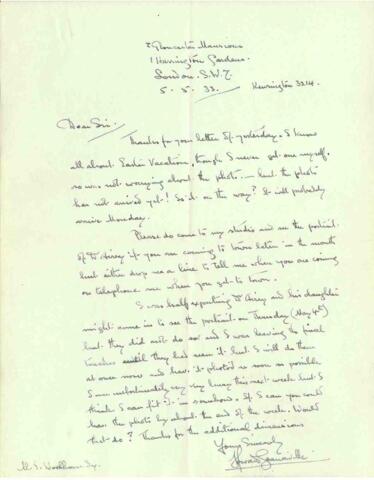 2 Gloucester Mansions
1 Harrington Gardens
London. S.W.7.
5. 5. 33. Kensington 3214.
Dear Sir.
Thanks for your letter of yesterday. I know
all about Easter Vacations, though I never get one myself.
so was not worrying about the photo. - but the photo
has not arrived yet! Is it on the way? It will probably
arrive Monday.
Please do come to my studio and see the portrait
of Dr if you are coming to town later in the month
but either drop me a line to tell me when you are coming
or telephone me when you get to town.
I was half expecting Dr and his daughter
might come in to see the portrait on Thursday (May 4th)
but they did not do so and I was leaving the final
touches until they had seen it. but I will do them
at once now and have it photoed as soon as possible
I am unfortunately very very busy this next week but I
think I can fit it in somehow. If I can you could
have the photo by about the end of the week. Would
that do? Thanks for the additional dimensions
Yours Sincerely